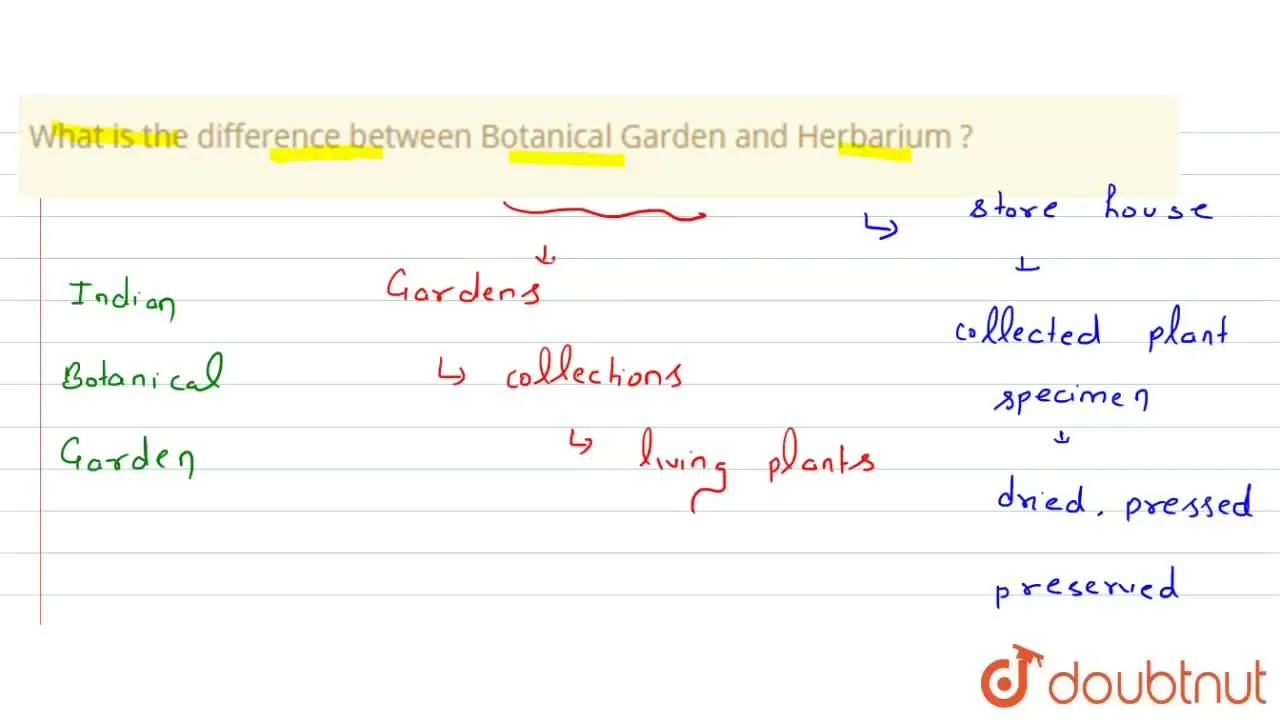 What is the difference between Botanical Garden and Herbarium ?
Indian
Botanical
Garden
Gardens
collections
living plants
store house
collected plant
specimen
dried, pressed
preserved
doubtnut